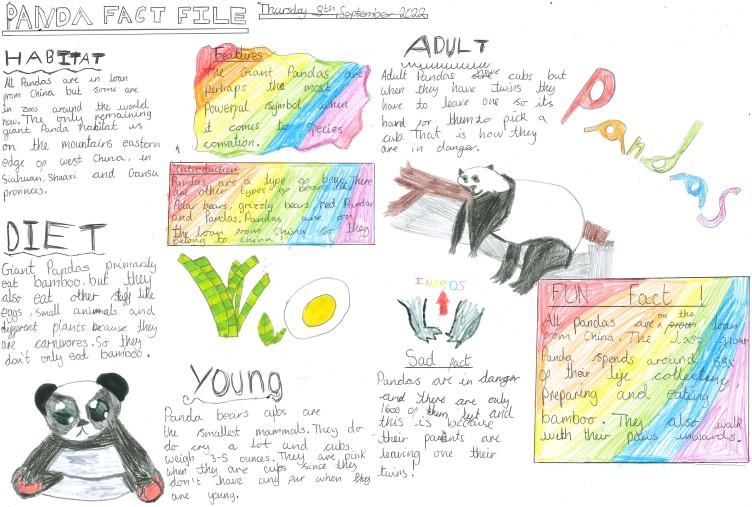 PANDA FACT FILE
Thursday 8th September 2022
HABITAT
All Pandas are in loan
from China but some are
in zoos around the world
now. The only remaining
giant Panda habitat is
on the mountains eastern
edge of west China, in
Sichuan, Shaxi and Gansu
provinces.
Features
The Giant Pandas are
perhaps the most
Powerful symbol when
it comes to species
convation.
Introduction
Pandas are a type of bear. There
are other types of bears like
Polar bears, grizzly bears, red Pandas
and Pandas. Pandas are on
the loan from China so they
belong to China!
ADULT
Adult Pandas have cubs but
when they have twins they
have to leave one so its
hard for them to pick a
cub. That is how they
are in danger.
Pandas
DIET
Giant Pandas primarily
eat bamboo, but they
also eat other stuff like
eggs, small animals and
different plants because they
are carnivores. So they
don't only eat bamboo.
Young
Panda bears cubs are
the smallest mammals. They do
do cry a lot and cubs
weigh 3-5 ounces. They are pink
when they are cubs since they
don't have and fur when they
are young.
INWARDS
Sad fact
Pandas are in danger
and there are only
1600 of them left and
this is because
their parents are
leaving one their
twins.
FUN Fact!
All pandas are on the loan
from China. The last
Panda spends around 55%
of their life collecting,
Preparing and eating
bamboo. They also walk
with their paws inwards.